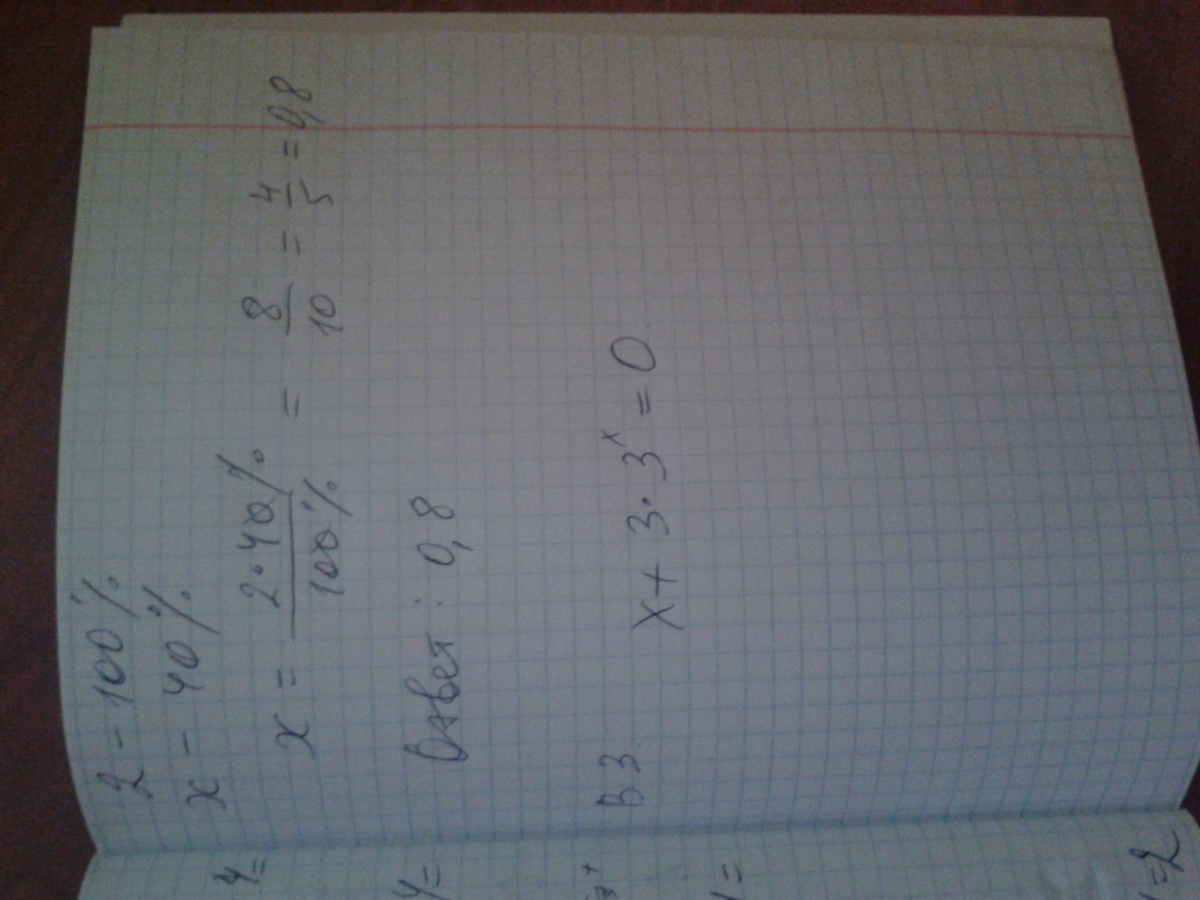 2 – 100%
x – 40%
x = 2·40% / 100% = 8/10 = 4/5 = 0,8
Ответ: 0,8
В3 x + 3·3ˣ = 0
y=
y=
=2